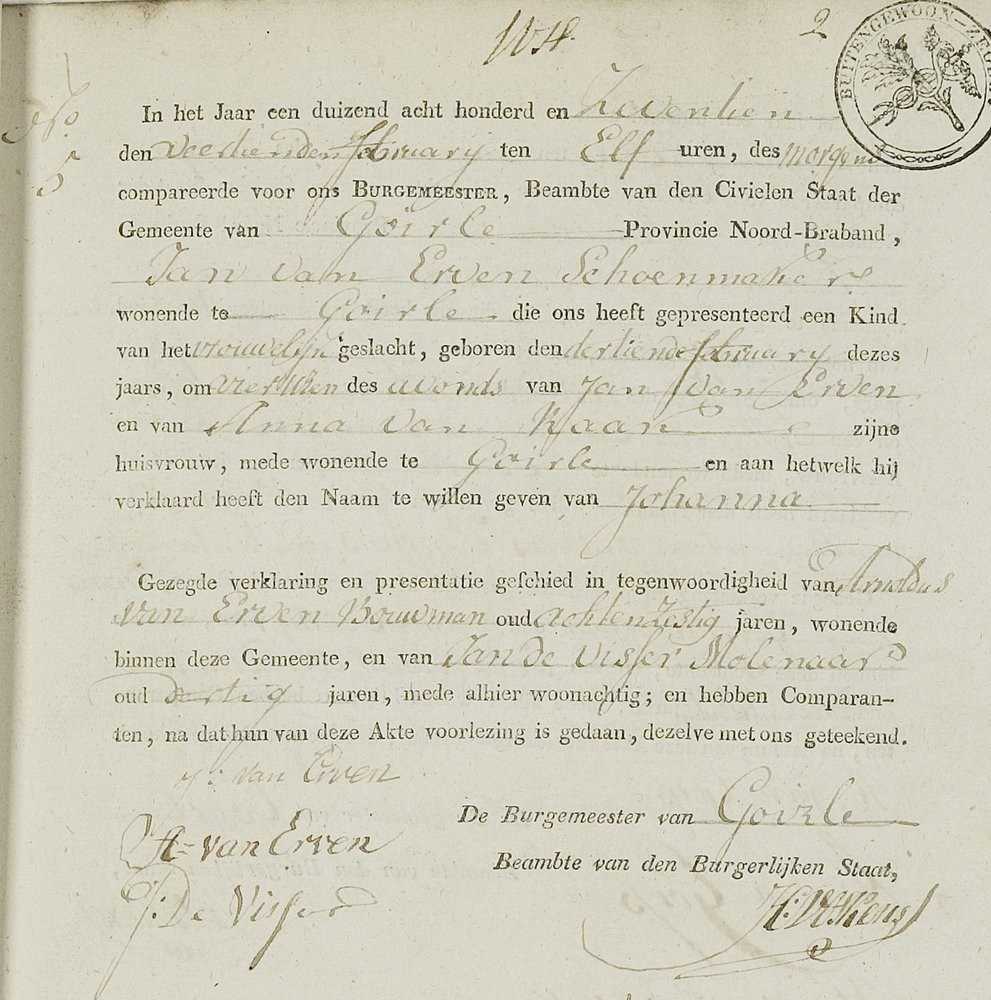 2
BUITENGEWOON-ZEGEL
No
5
In het Jaar een duizend acht honderd en Zeventien
den veertienden february ten Elf uren, des morgens
compareerde voor ons BURGEMEESTER, Beambte van den Civielen Staat der
Gemeente van Goirle Provincie Noord-Braband,
Jan van Erven Schoenmaker
wonende te Goirle die ons heeft gepresenteerd een Kind
van het vrouwelijn geslacht, geboren den dertiende february dezes
jaars, om vier uren des avonds van Jan van Erven
en van Anna van Raak zijne
huisvrouw, mede wonende te Goirle en aan hetwelk hij
verklaard heeft den Naam te willen geven van Johanna
Gezegde verklaring en presentatie geschied in tegenwoordigheid van Arnoldus
van Erven Bouwman oud achtenzestig jaren, wonende
binnen deze Gemeente, en van Jan de Visser Molenaar
oud dertig jaren, mede alhier woonachtig; en hebben Comparan-
ten, na dat hun van deze Akte voorlezing is gedaan, dezelve met ons geteekend.
J: van Erven
De Burgemeester van Goirle
A- van Erven
Beambte van den Burgerlijken Staat,
J: De Visser